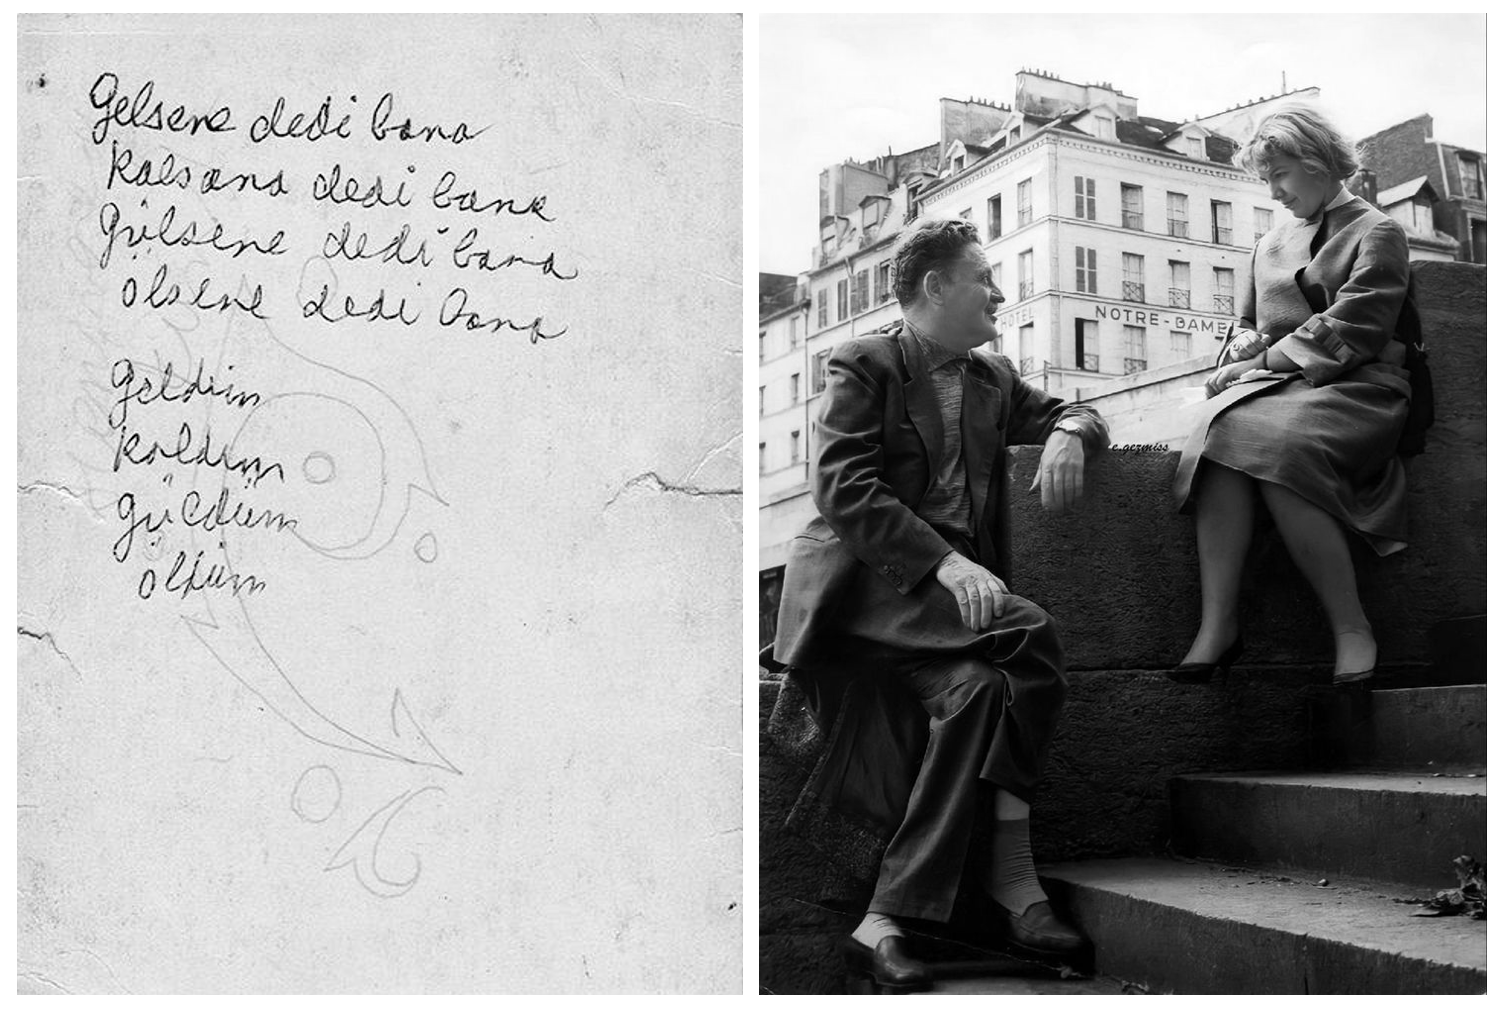 Gelsene dedi bana
Kalsana dedi bana
Gülsene dedi bana
ölsene dedi bana
Geldim
kaldım
güldüm
öldüm
HOTEL
NOTRE-DAME
e.gezmiss